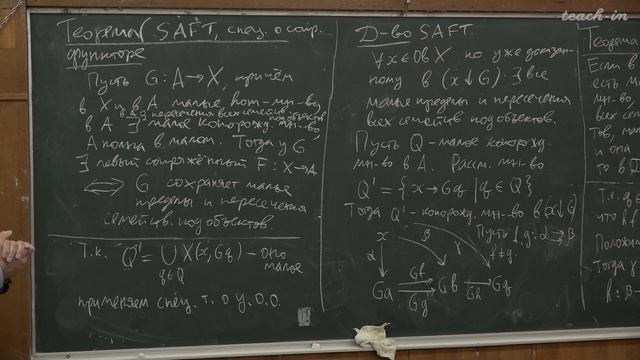 teach-in
Теорема (SAFT, спец. о сопр.
функторе
Пусть G: A → X, причём
в X и в A малые hom-мн-ва,
в A ∃ пересечения всех семейств подобъектов
в A ∃ малое копорожд. мн-во,
A полна в малом. Тогда у G
∃ левый сопряжённый F: X→A
⟺ G сохраняет малые
пределы и пересечения
семейств подобъектов.
Т.к. Q' = ∪ X(x, Gq) – оно
q∈Q малое
применяем спец. т. о у.о.о.
Д-во SAFT.
∀x∈Ob X по уже доказан-
ному в (x↓G) ∃ все
малые пределы и пересечения
всех семейств подобъектов.
Пусть Q – малое копорожд.
мн-во в A. Рассм. мн-во
Q' = {x→Gq | q∈Q}
Тогда Q' – копорожд. мн-во в (x↓G)
x β γ Пусть f,g: α ⇉ β
α f≠g.
Ga Gf Gb Gh Gq
Gg
Теорема
Если в
есть м
мн-во
всех
тов,
и она
то в
Т.е. q∈
что
Положим
Тогда